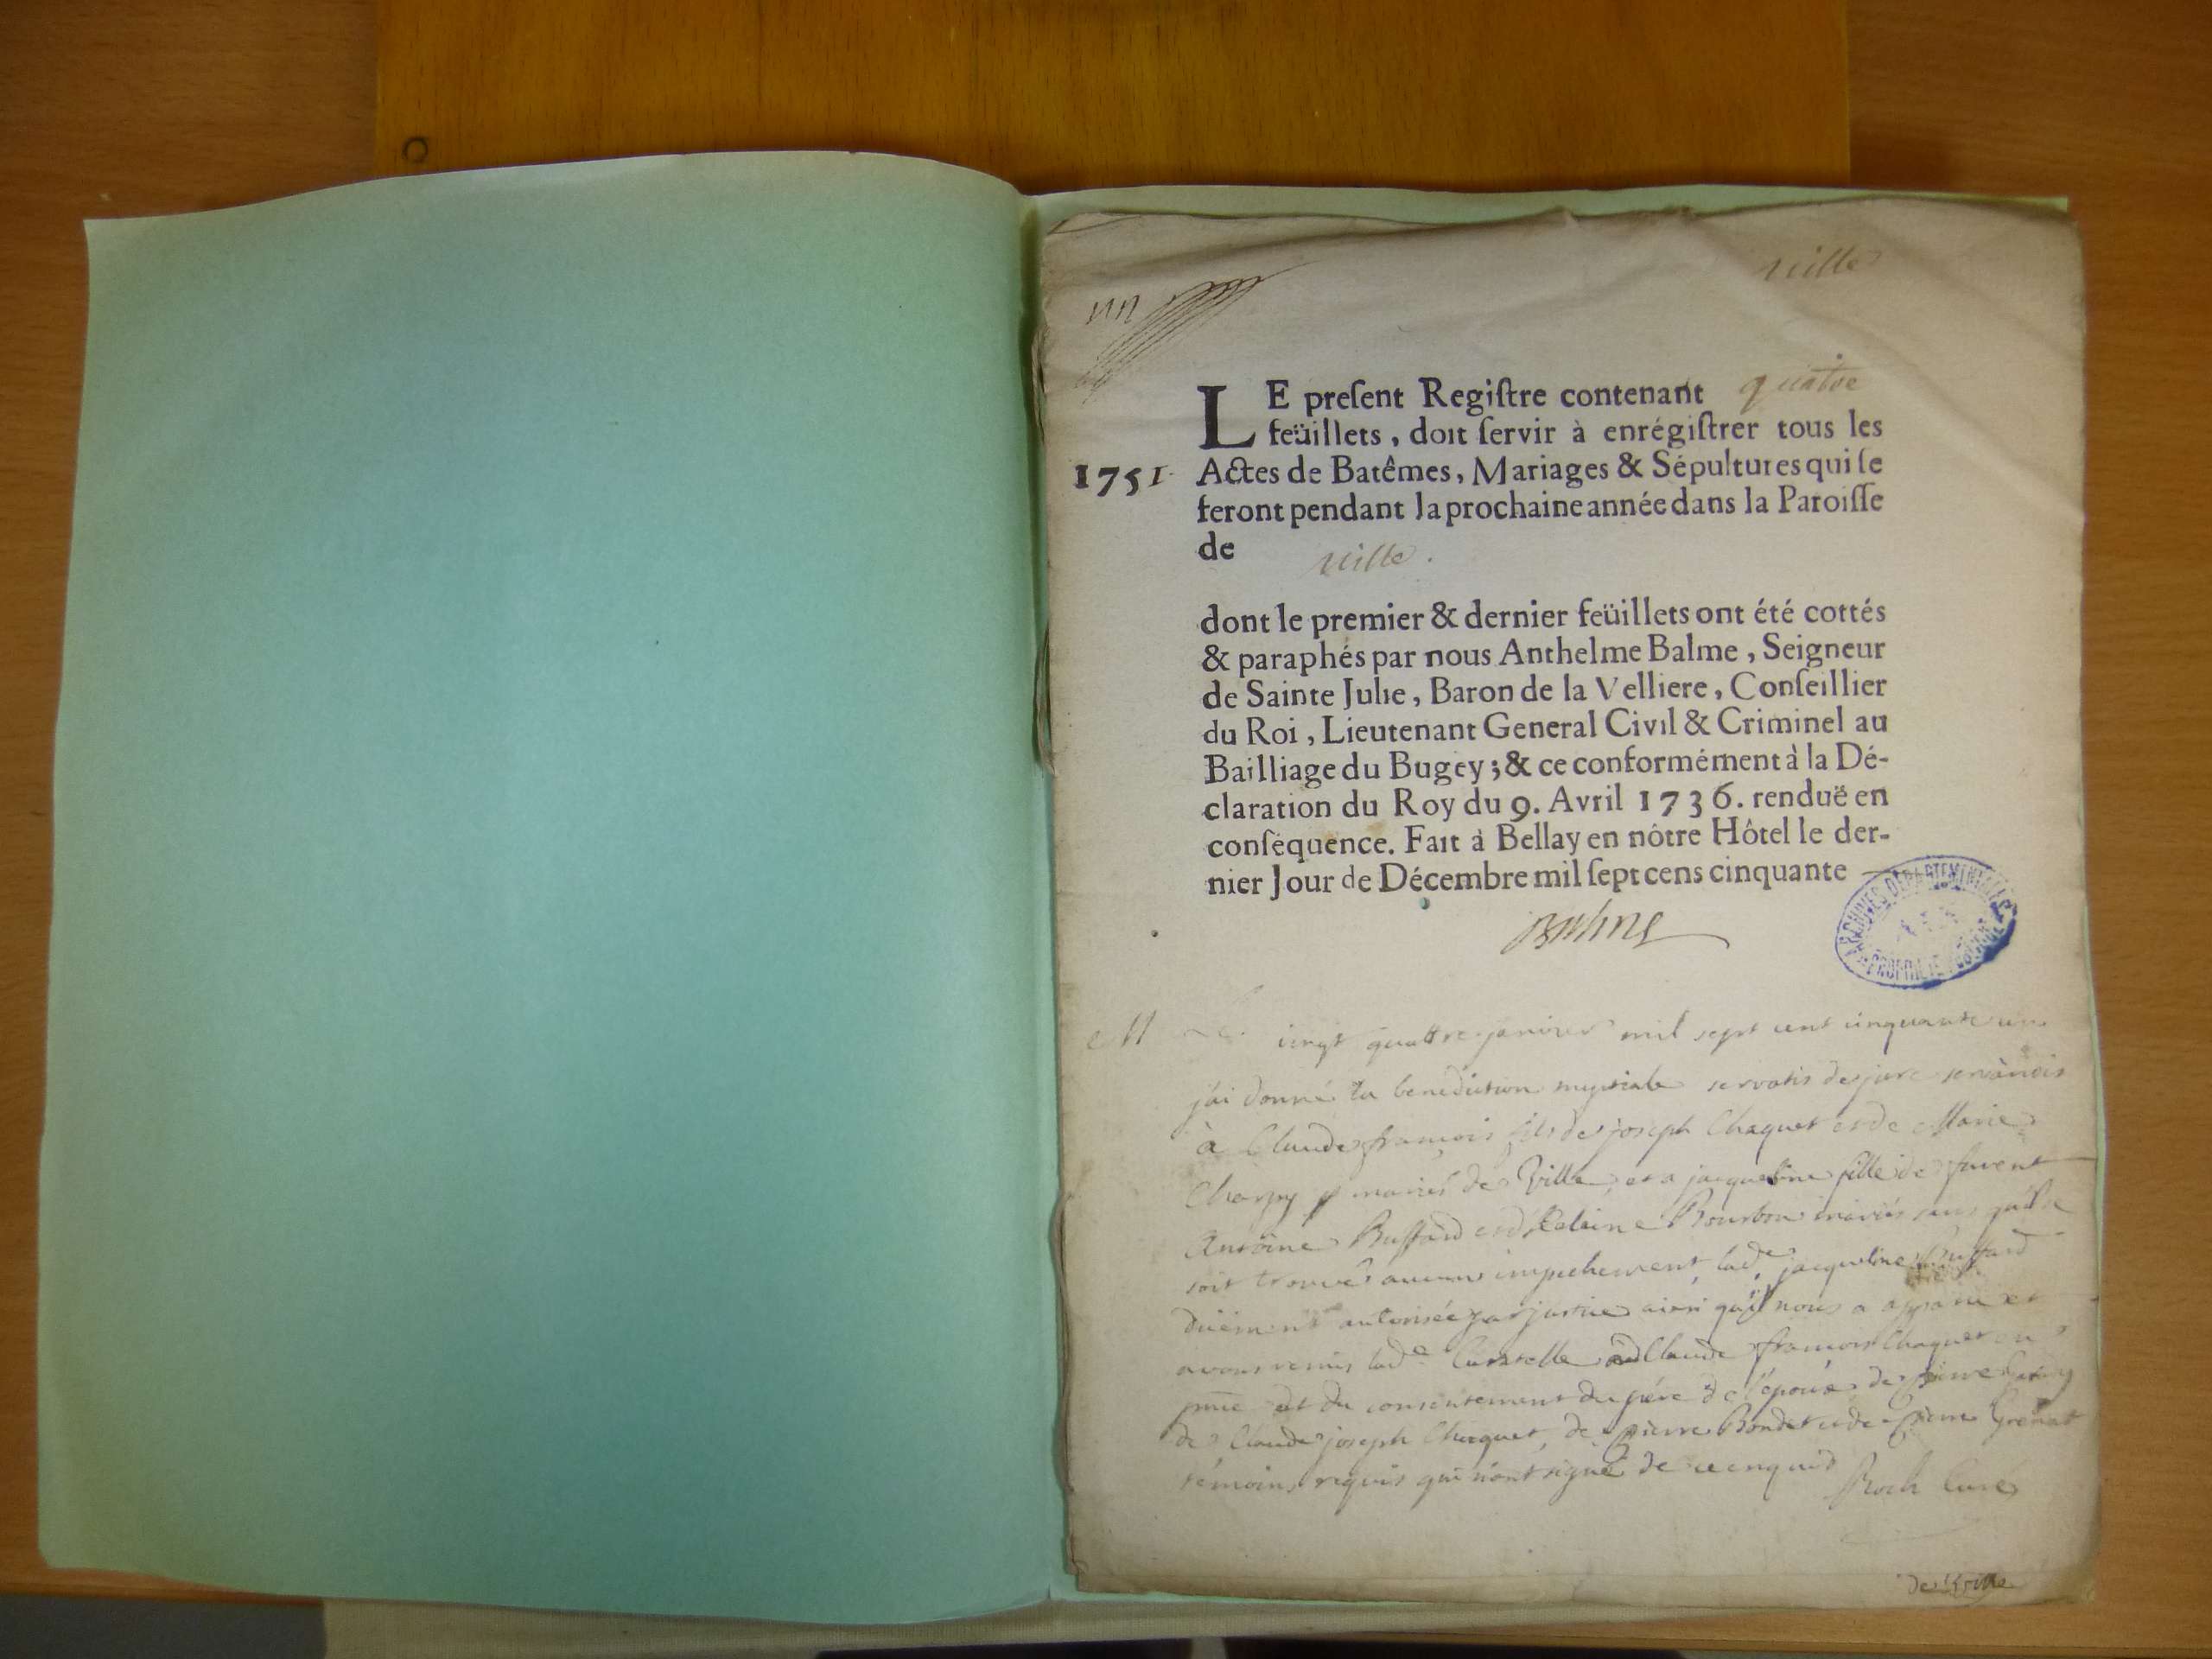 un
ville
LE preſent Regiſtre contenant quatre
feüillets, doit ſervir à enrégiſtrer tous les
1751. Actes de Batêmes, Mariages & Sépultures qui ſe
feront pendant la prochaine année dans la Paroiſſe
de ville.
dont le premier & dernier feüillets ont été cottés
& paraphés par nous Anthelme Balme, Seigneur
de Sainte Julie, Baron de la Velliere, Conſeillier
du Roi, Lieutenant General Civil & Criminel au
Bailliage du Bugey; & ce conformément à la Dé-
claration du Roy du 9. Avril 1736. renduë en
conſéquence. Fait à Bellay en nôtre Hôtel le der-
nier Jour de Décembre mil ſept cens cinquante
Balme
ARCHIVES DEPARTEMENTALES
PROPRIETE PUBLIQUE
M Le vingt quattre janvier mil sept cent cinquante un
j'ai donné la benediction nuptiale servatis de jure servandis
à Claude françois fils de joseph Chaquet et de Marie
Charpy mariés de Ville, et a jacqueline fille de
Antoine Buffard et d' Bourbon mariés sans qu'il se
soit trouvé aucuns empechement, lad^e jacqueline Buffard
düement autorisée par justice ainsi qu'il nous a apparu et
avons remis lad^e Claude françois Chaquet
et du consentement du père de l'épouse de Pierre
de Claude joseph Chaquet, de Pierre Bondet et de Pierre Grenat
témoins requis qui n'ont signé de ce enquis
Roch Curé
de Ville